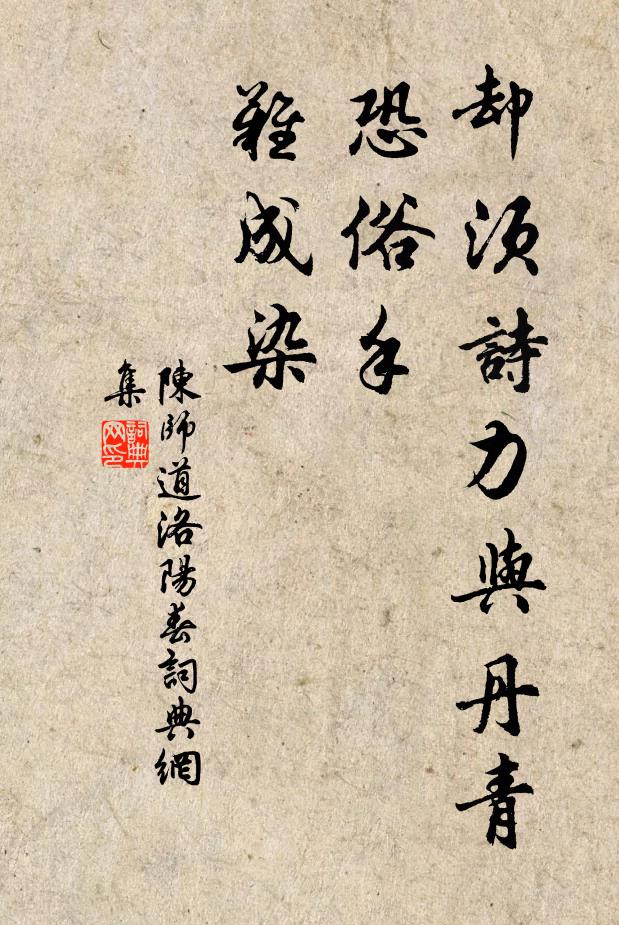 却須詩力與丹青
恐俗手
難成染
陳師道洛陽春詞典網
集
詞典
网印